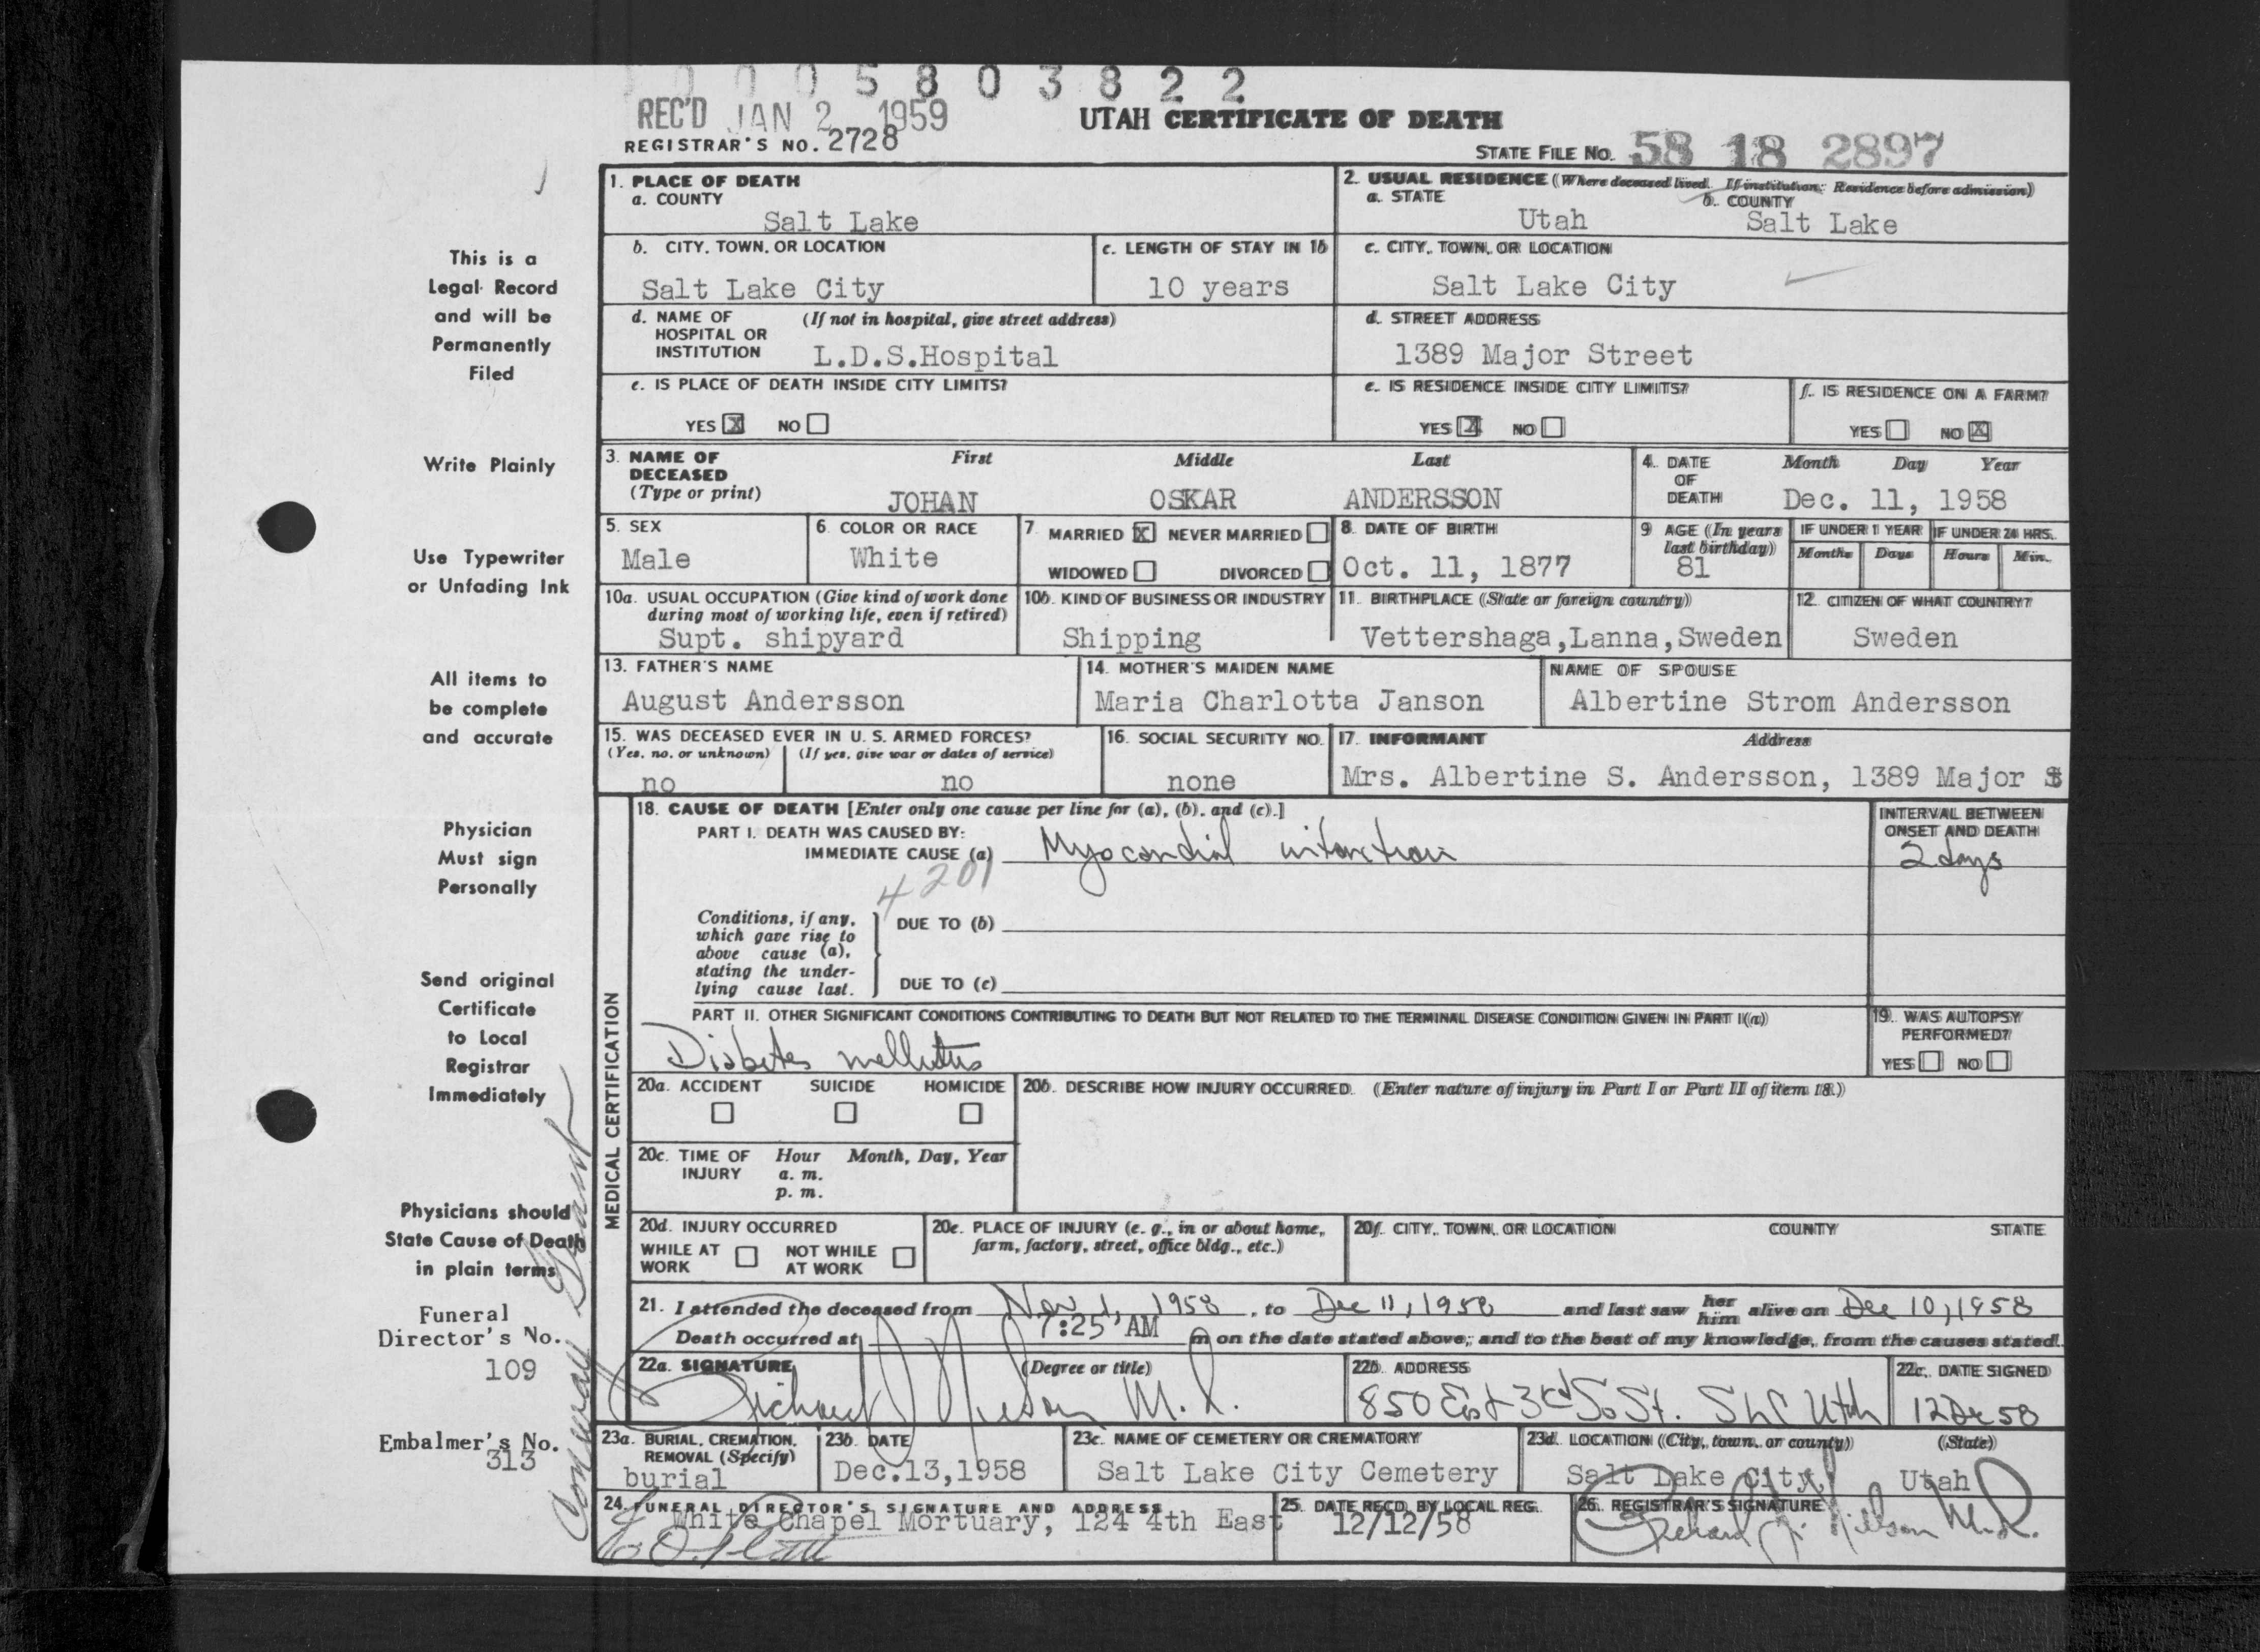 0 0 0 5 8 0 3 8 2 2
REC'D JAN 2 1959
UTAH CERTIFICATE OF DEATH
REGISTRAR'S NO. 2728
STATE FILE NO. 58 18 2897
1. PLACE OF DEATH
a. COUNTY
Salt Lake
2. USUAL RESIDENCE (Where deceased lived. If institution: Residence before admission)
a. STATE
Utah
b. COUNTY
Salt Lake
b. CITY, TOWN, OR LOCATION
Salt Lake City
c. LENGTH OF STAY IN 1b
10 years
c. CITY, TOWN, OR LOCATION
Salt Lake City
d. NAME OF (If not in hospital, give street address)
HOSPITAL OR
INSTITUTION L.D.S.Hospital
d. STREET ADDRESS
1389 Major Street
e. IS PLACE OF DEATH INSIDE CITY LIMITS?
YES X NO
e. IS RESIDENCE INSIDE CITY LIMITS?
YES X NO
f. IS RESIDENCE ON A FARM?
YES NO X
3. NAME OF DECEASED (Type or print)
First Middle Last
JOHAN OSKAR ANDERSSON
4. DATE OF DEATH
Month Day Year
Dec. 11, 1958
5. SEX
Male
6. COLOR OR RACE
White
7. MARRIED X NEVER MARRIED
WIDOWED DIVORCED
8. DATE OF BIRTH
Oct. 11, 1877
9 AGE (In years last birthday)
81
IF UNDER 1 YEAR
Months Days
IF UNDER 24 HRS.
Hours Min.
10a. USUAL OCCUPATION (Give kind of work done
during most of working life, even if retired)
Supt. shipyard
10b. KIND OF BUSINESS OR INDUSTRY
Shipping
11. BIRTHPLACE (State or foreign country)
Vettershaga,Lanna,Sweden
12. CITIZEN OF WHAT COUNTRY?
Sweden
13. FATHER'S NAME
August Andersson
14. MOTHER'S MAIDEN NAME
Maria Charlotta Janson
NAME OF SPOUSE
Albertine Strom Andersson
15. WAS DECEASED EVER IN U. S. ARMED FORCES?
(Yes, no, or unknown) (If yes, give war or dates of service)
no no
16. SOCIAL SECURITY NO.
none
17. INFORMANT Address
Mrs. Albertine S. Andersson, 1389 Major
MEDICAL CERTIFICATION
18. CAUSE OF DEATH [Enter only one cause per line for (a), (b), and (c).]
PART I. DEATH WAS CAUSED BY:
IMMEDIATE CAUSE (a) Myocardial infarction
INTERVAL BETWEEN ONSET AND DEATH
2 days
4201
Conditions, if any,
which gave rise to
above cause (a),
stating the under-
lying cause last.
DUE TO (b)
DUE TO (c)
PART II. OTHER SIGNIFICANT CONDITIONS CONTRIBUTING TO DEATH BUT NOT RELATED TO THE TERMINAL DISEASE CONDITION GIVEN IN PART I(a)
Diabetes mellitus
19. WAS AUTOPSY PERFORMED?
YES NO
20a. ACCIDENT SUICIDE HOMICIDE
20b. DESCRIBE HOW INJURY OCCURRED. (Enter nature of injury in Part I or Part II of item 18.)
20c. TIME OF INJURY
Hour Month, Day, Year
a. m.
p. m.
20d. INJURY OCCURRED
WHILE AT WORK NOT WHILE AT WORK
20e. PLACE OF INJURY (e. g., in or about home,
farm, factory, street, office bldg., etc.)
20f. CITY, TOWN, OR LOCATION COUNTY STATE
21. I attended the deceased from Nov 1, 1958, to Dec 11, 1958 and last saw her him alive on Dec 10, 1958
Death occurred at 7:25 AM m on the date stated above; and to the best of my knowledge, from the causes stated.
22a. SIGNATURE (Degree or title)
Richard J Nelson M.D.
22b. ADDRESS
850 East 3rd So St. SLC Utah
22c. DATE SIGNED
12 De 58
23a. BURIAL, CREMATION, REMOVAL (Specify)
burial
23b. DATE
Dec.13,1958
23c. NAME OF CEMETERY OR CREMATORY
Salt Lake City Cemetery
23d. LOCATION (City, town, or county) (State)
Salt Lake City, Utah
24. FUNERAL DIRECTOR'S SIGNATURE AND ADDRESS
White Chapel Mortuary, 124 4th East
25. DATE RECD. BY LOCAL REG.
12/12/58
26. REGISTRAR'S SIGNATURE
This is a
Legal Record
and will be
Permanently
Filed
Write Plainly
Use Typewriter
or Unfading Ink
All items to
be complete
and accurate
Physician
Must sign
Personally
Send original
Certificate
to Local
Registrar
Immediately
Physicians should
State Cause of Death
in plain terms
Funeral
Director's No.
109
Embalmer's No.
313